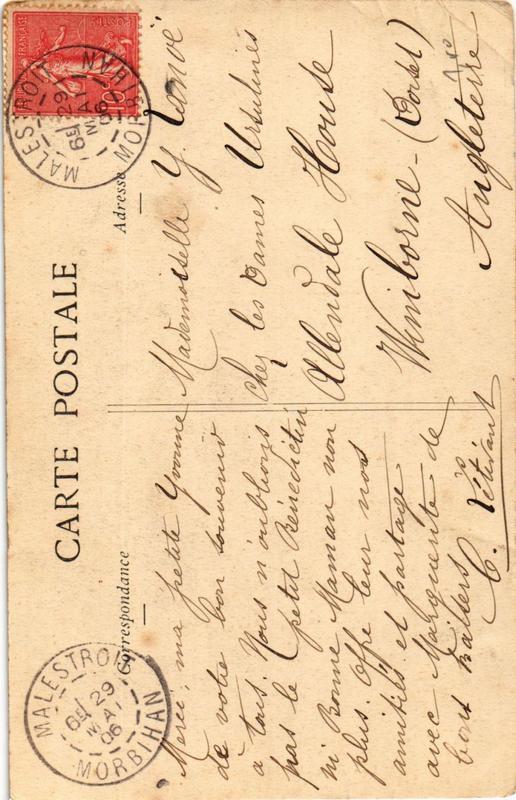 CARTE POSTALE
Correspondance
Merci, ma petite Yvonne
de votre bon souvenir
à tous. Nous n'oublions
pas le petit Bénédictin
ni Bonne Maman non
plus. Offre leur nos
amitiés et partage
avec Marguerite de
bons baisers
C.
Adresse
Mademoiselle Y.
Chez les Dames Ursulines
Allendale House
Wimborne - (Dorset)
Angleterre
MALESTROIT
6E 29
MAI
06
MORBIHAN
MALESTROIT
6E 29
MAI
06
MORBIHAN
FRANÇAISE
POSTES
10